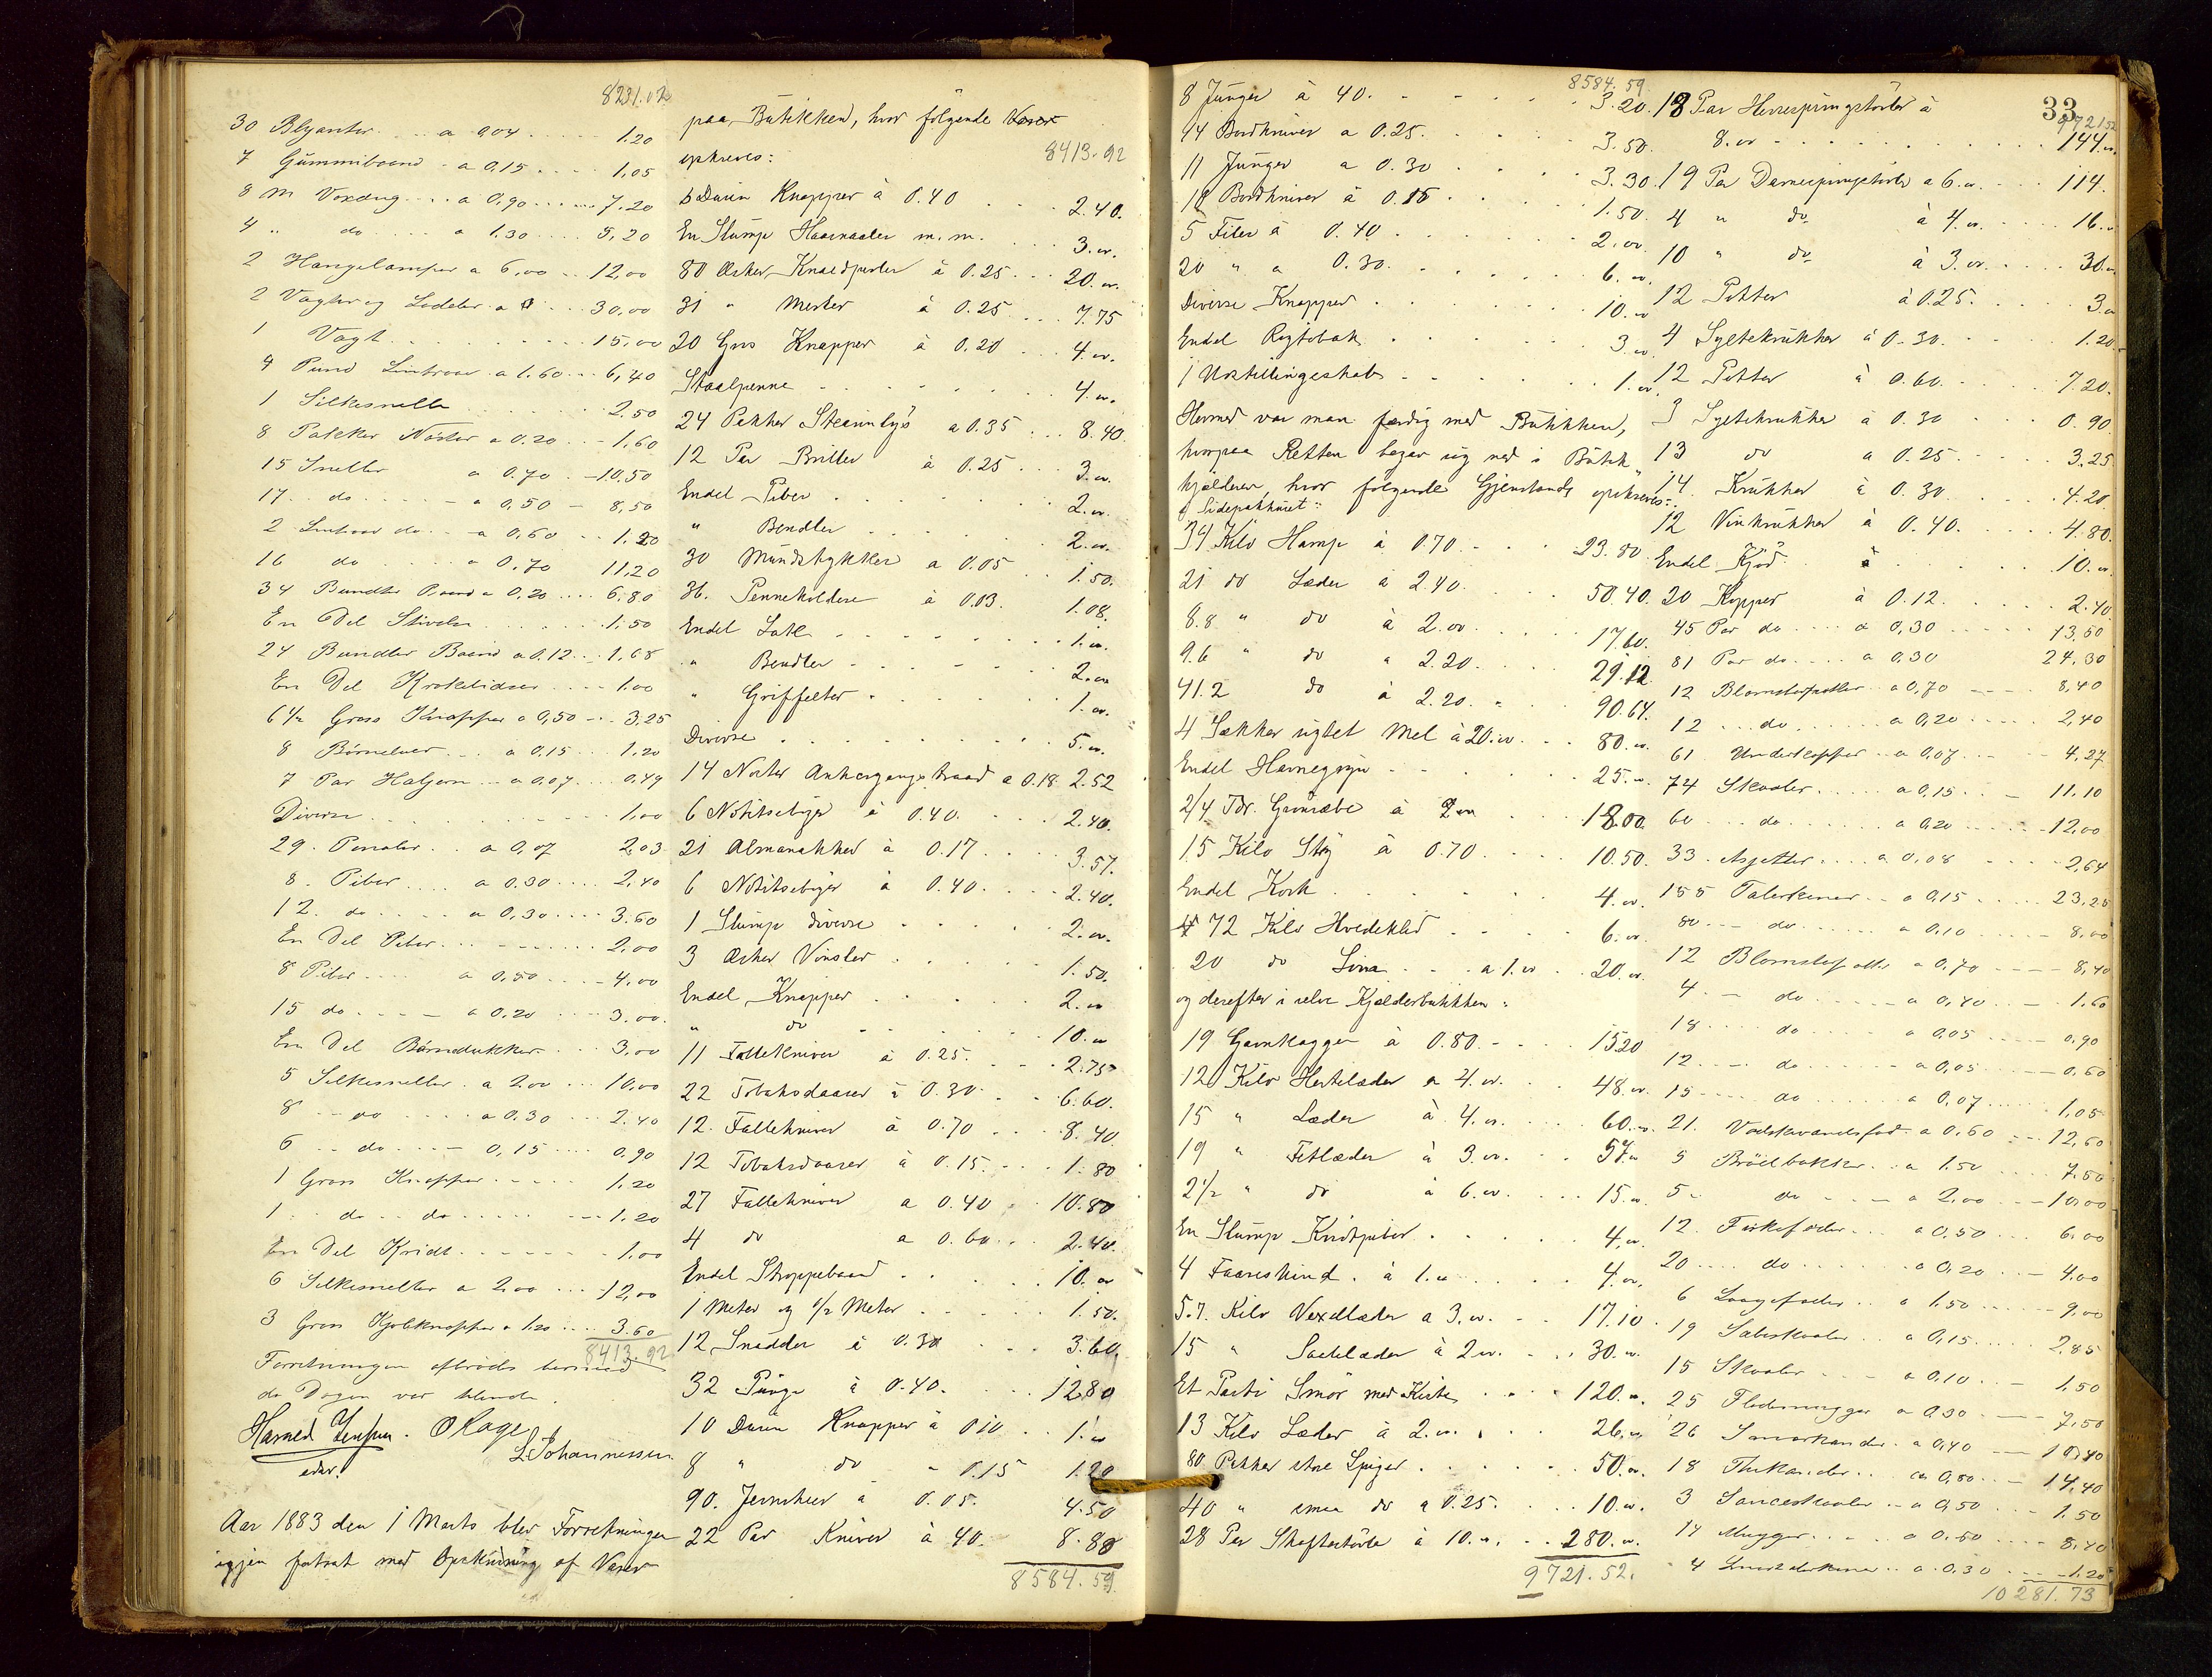 8231.02
30 Blyanter a 0.04 1.20
7 Gummibaand a 0,15 1,05
8 m Voxdug a 0,90 7.20
4 " do a 1.30 5,20
2 Hangelamper a 6,00 12,00
2 Vagter og Lodder a 30,00
1 Vagt 15,00
4 Pund Lintraad a 1.60 6,40
1 Silkesnelle 2.50
8 Pakker Nöster a 0.20 1,60
15 Sneller a 0.70 10,50
17 do a 0,50 8,50
2 Lintraad do a 0,60 1.20
16 do a 0.70 11,20
34 Bundter Baand a 0,20 6,80
En Del Stivelse 1,50
24 Bundter Baand a 0.12 1,68
En Del Krokelidser 1,00
6 1/2 Gross Knapper a 0,50 3,25
8 Børneluer a 0.15 1,20
7 Par Halsjern a 0,07 0,49
Diverse 1,00
29 Penaler a 0,07 2,03
8 Piber a 0.30 2,40
12 do a 0,30 3.60
En Del Piber 2,00
8 Piber a 0,50 4,00
15 do a 0.20 3.00
En Del Børnedukker 3,00
5 Silkesneller a 2.00 10,00
8 do a 0.30 2.40
6 do 0,15 0.90
1 Gross Knapper 1,20
1 do do 1.20
En Del Kridt 1,00
6 Silkesneller a 2,00 12,00
3 Gros Kjoleknapper a 1.20 3.60
8413.92
Forretningen afbrödes hermed
da Dagen var tilende.
Harald Jensen. O Kage
L Johannessen
edsv.
Aar 1883 den 1 Marts blev Forretningen
igjen fortsat med Opskrivning af Varer
paa Butikken, hvor følgende Varer
opskreves: 8413.92
6 Dusin Knapper à 0.40 2.40.
En Slump Haarnaaler m.m. 3.oo.
80 Æsker Knaedperler à 0.25 20.oo.
31 " Merler à 0.25 7.75
20 Gros Knapper à 0.20 4.oo.
Staalpenne 4.oo.
24 Pakker Stearinlys a 0.35 8.40.
12 Par Briller à 0.25 3.oo.
Endel Piber 2.oo.
" Bendler 2.oo.
30 Mundstykker a 0.05 1.50.
36 Penneholdere à 0.03. 1.08.
Endel Lak 1.oo.
" Bendler 2.oo
" Griffelter 1.oo.
Diverse 5.oo.
14 Nöster Ankergangstraad a 0.18 2.52
6 Notitsebøger à 0.40. 2.40.
21 Almanakker à 0.17 3.57.
6 Notitsebøger à 0.40. 2.40.
1 Slump diverse 2.oo.
3 Æsker Vinsler 1.50.
Endel Knapper 2.oo
" do 10.oo
11 Fallekniver à 0.25. 2.75
22 Tobaksdaaser à 0.30 6.60.
12 Fallekniver à 0.70 8.40
12 Tobaksdaaser à 0.15 1.80
27 Fallekniver a 0.40 10.80
4 do a 0.60 2.40.
Endel Stroppebaand 10.oo
1 Meter og 1/2 Meter 1.50.
12 Snadder à 0.30 3.60.
32 Punge à 0.40. 12.80
10 Dusin Knapper à 0.10 1.oo
8 " do - 0.15 1.20
90. Jernskeer à 0.05. 4.50
22 Par Kniver à 40. 8.80
8584.59
8584.59
8 Junger à 40. 3.20.
14 Bordkniver a 0.25. 3.50.
11 Junger a 0.30 3.30.
10 Bordkniver à 0.15 1.50.
5 Filer à 0.40 2.oo.
20 " a 0.30. 6.oo.
Diverse Knapper 10.oo
Endel Røgtobak 3.oo.
1 Udstillingsskab 1.oo.
Hermed var man færdig med Butikken,
hvorpaa Retten begav sig ned i Butik
kjælderen, hvor følgende Gjenstande opskreves:
i Sidepakhuset:
34 Kilo Hamp à 0.70. 23.80.
21 do Læder à 2.40. 50.40.
8.8 " do à 2.00. 17.60.
9.6 " do " 2.20. 29.12
41.2 do à 2.20. 90.64.
4 Sækker sigtet Mel à 20.oo. 80.oo.
Endel Havregryn 25.oo.
2/4 Tdr. Grønsæbe à 9.oo 18.00.
15 Kilo Støy à 0.70 10.50.
Endel Kork 4.oo.
72 Kilo Hvedeklid 6.oo.
20 do Lina a 1.oo 20.oo.
og derefter i selve Kjælderbutikken:
19 Garnkagger à 0.80. 15.20
12 Kilo Hestelæder a 4.oo. 48.oo.
15 " Læder à 4.oo. 60.oo.
19 " Fetlæder à 3.oo. 57.oo
2 1/2 " do à 6.oo. 15.oo.
En Slump Kridtpiber 4.oo.
4 Faareskind. à 1.oo 4.oo.
5.7. Kilo Vexellæder a 3.oo. 17.10.
15 " Saalelæder à 2oo. 30.oo.
Et Parti Smör med Kister 120.oo.
13 Kilo Læder à 2.oo. 26.oo.
80 Pakker store Spiger 50.oo.
40 " smaa do a 0.25. 10.oo.
28 Par Skaftestövle à 10.oo. 280.oo.
9721.52.
33
9721.52
18 Par Herrespringstövler à
8.oo 144.oo.
19 Par Damespringstövle a 6.oo. 114.
4 " do à 4.oo. 16.oo
10 " do à 3.oo. 30.oo
12 Potter à 0.25. 3.oo
4 Syltekrukker à 0.30. 1.20
12 Potter à 0.60. 7.20.
3 Syltekrukker à 0.30 0.90
13 do a 0.25. 3.25
14. Krukker à 0.30 4.20
12 Vinkrukker à 0.40. 4.80.
Endel Kjöd 10.oo.
20 Kopper à 0.12. 2.40
45 Par do a 0,30 13,50
81 Par do a 0,30 24,30
12 Blomsterpotter a 0,70 8,40
12 do a 0,20 2,40
61 Underkopper a 0,07 4,27
74 Skaaler a 0,15 11.10
60 do a 0,20 12,00
33 Asjetter a 0,08 2,64
155 Talerkener a 0,15 23,25
80 do a 0,10 8,00
12 Blomsterpotter a 0,70 8,40
4 do a 0,40 1.60
18 do a 0,05 0,90
12 do a 0,05 0,60
15 do a 0,07 1,05
21. Vadskevandsfad a 0,60 12,60
5 Brödbakker a 1.50 7.50
5 do a 2,00 10,00
12 Fiskefader a 0,50 6,00
20 do a 0,20 4,00
6 Laagefader a 1.50 9,00
19 Salaskaaler a 0,15 2,85
15 Skaaler a 0,10 1,50
25 Flodemugger a 0,30 7,50
26 Smørkander a 0,40 10,40
18 Thekander a 0,80 14,40
3 Sauceskaaler a 0,50 1.50
14 Mugger a 0,60 8,40
4 a 0.30 1.20
10281.73